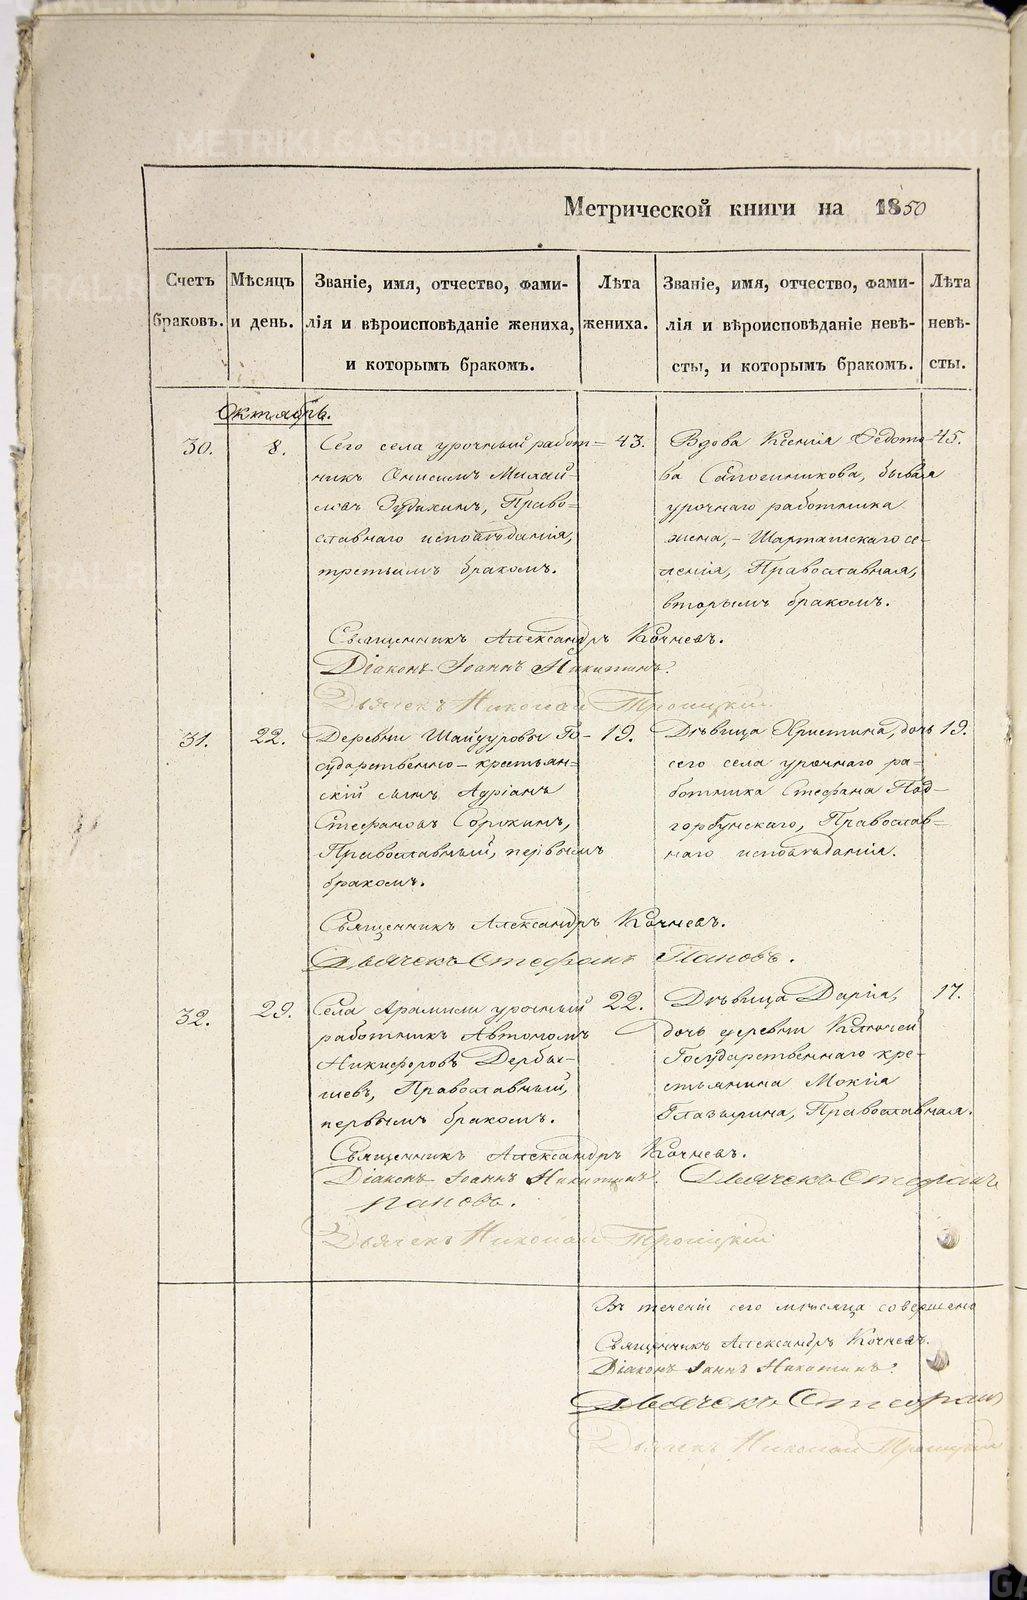 Метрической книги на 1850
Счетъ браковъ.
Мѣсяцъ и день.
Званіе, имя, отчество, фами-
лія и вѣроисповѣданіе жениха,
и которымъ бракомъ.
Лѣта жениха.
Званіе, имя, отчество, фами-
лія и вѣроисповѣданіе невѣ-
сты, и которымъ бракомъ.
Лѣта невѣ-
сты.
Октябрь.
30.
8.
Сего села урочный работ-
никъ Онисимъ Михай-
ловъ Зудихинъ, Право-
славнаго исповѣданія,
третьимъ бракомъ.
43.
Вдова Ксенія Ѳедото-
ва Сапогиникова, бывая
урочнаго работника
жена, - Шарташскаго се-
ленія, Православная,
вторымъ бракомъ.
45.
Священникъ Александръ Кочневъ.
Діаконъ Іоаннъ Никитинъ.
Дьячекъ Николай Троицкій
31.
22.
Деревни Шайдуровы Го-
сударственно-крестьян-
скій сынъ Адріанъ
Стефановъ Сорокинъ,
Православный, первымъ
бракомъ.
19.
Дѣвица Христина, дочь
сего села урочнаго ра-
ботника Стефана Под-
горбунскаго, Православ-
наго исповѣданія.
19.
Священникъ Александръ Кочневъ.
Дьячекъ Стефанъ Пановъ.
32.
29.
Села Арамили урочный
работникъ Автономъ
Никифоровъ Дербы-
шевъ, Православный,
первымъ бракомъ.
22.
Дѣвица Дарія,
дочь деревни Ключей
Государственнаго кре-
стьянина Мокія
Глазырина, Православная.
17.
Священникъ Александръ Кочневъ.
Діаконъ Іоаннъ Никитинъ. Дьячекъ Стефанъ
Пановъ.
Дьячекъ Николай Троицкій
Въ теченіи сего мѣсяца совершено
Священникъ Александръ Кочневъ.
Діаконъ Іоаннъ Никитинъ.
Дьячекъ Стефанъ
Дьячекъ Николай Троицкій
METRIKI.GASO-URAL.RU